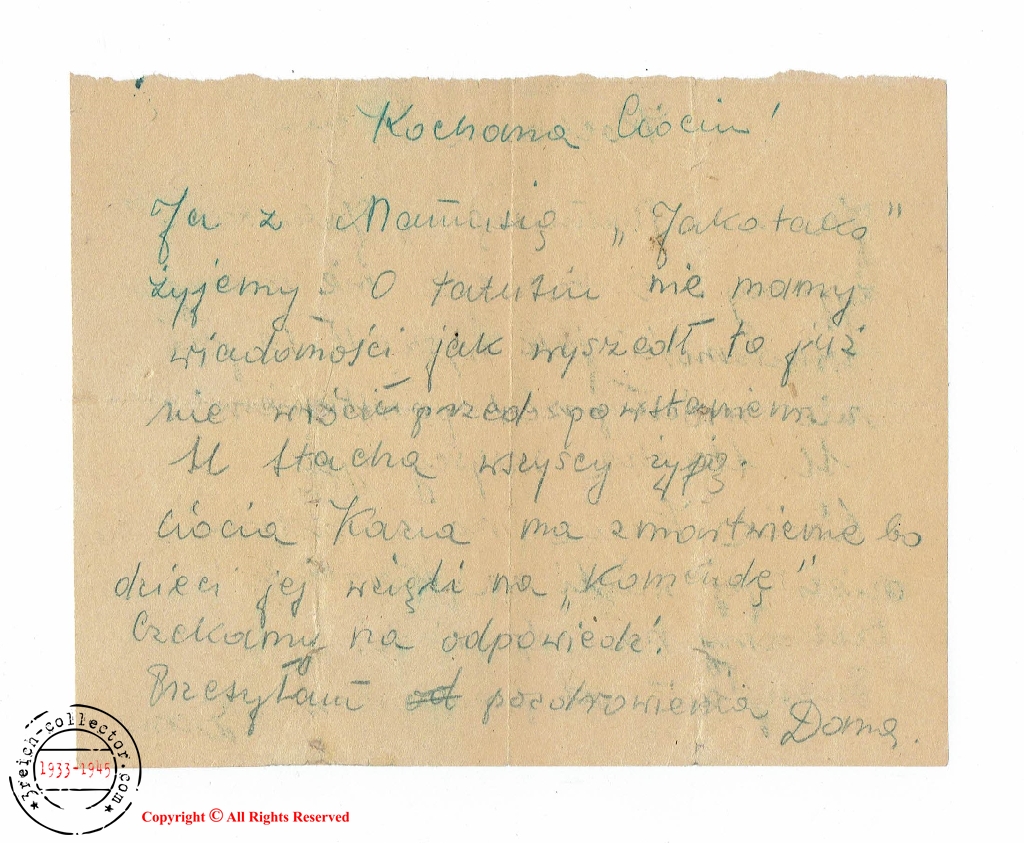 Kochana Ciociu!
Ja z Mamusią „Jako tako"
żyjemy. O tatusiu nie mamy
wiadomości jak wyszedł to już
nie wrócił przed powstaniem.
U Stacha wszyscy żyją.
Ciocia Kazia ma zmartwienie bo
dzieci jej wzięli na „Komendę"
Czekamy na odpowiedź.
Przesyłam pozdrowienia
Dana.
3reich-collector.com
1933-1945
Copyright © All Rights Reserved